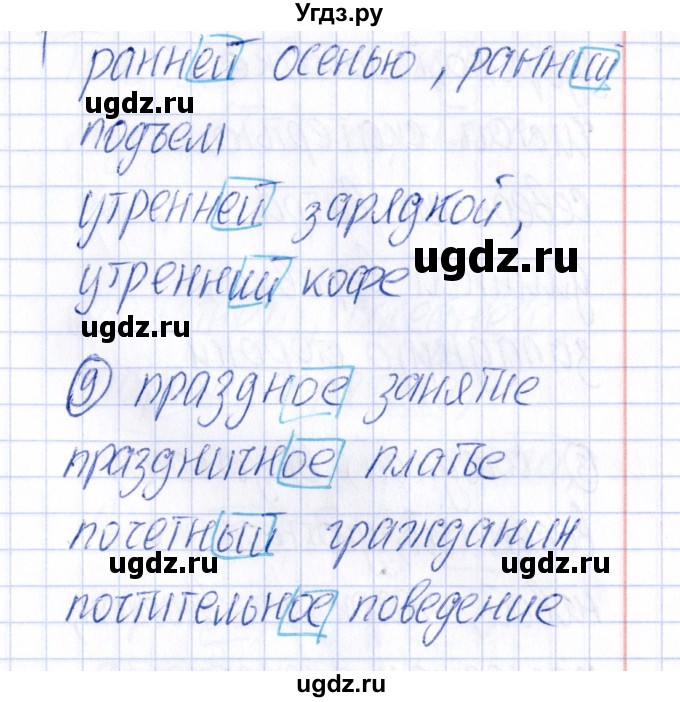 Угдз.ру
ранней осенью, ранний
ugdz.ru
подъем
утренней зарядкой,
ugdz.ru
утренний кофе
ugdz.ru
9 праздное занятие
праздничное платье
ugdz.ru
почетный гражданин
ugdz.ru ugdz.ru
почтительное поведение
ugdz.ru